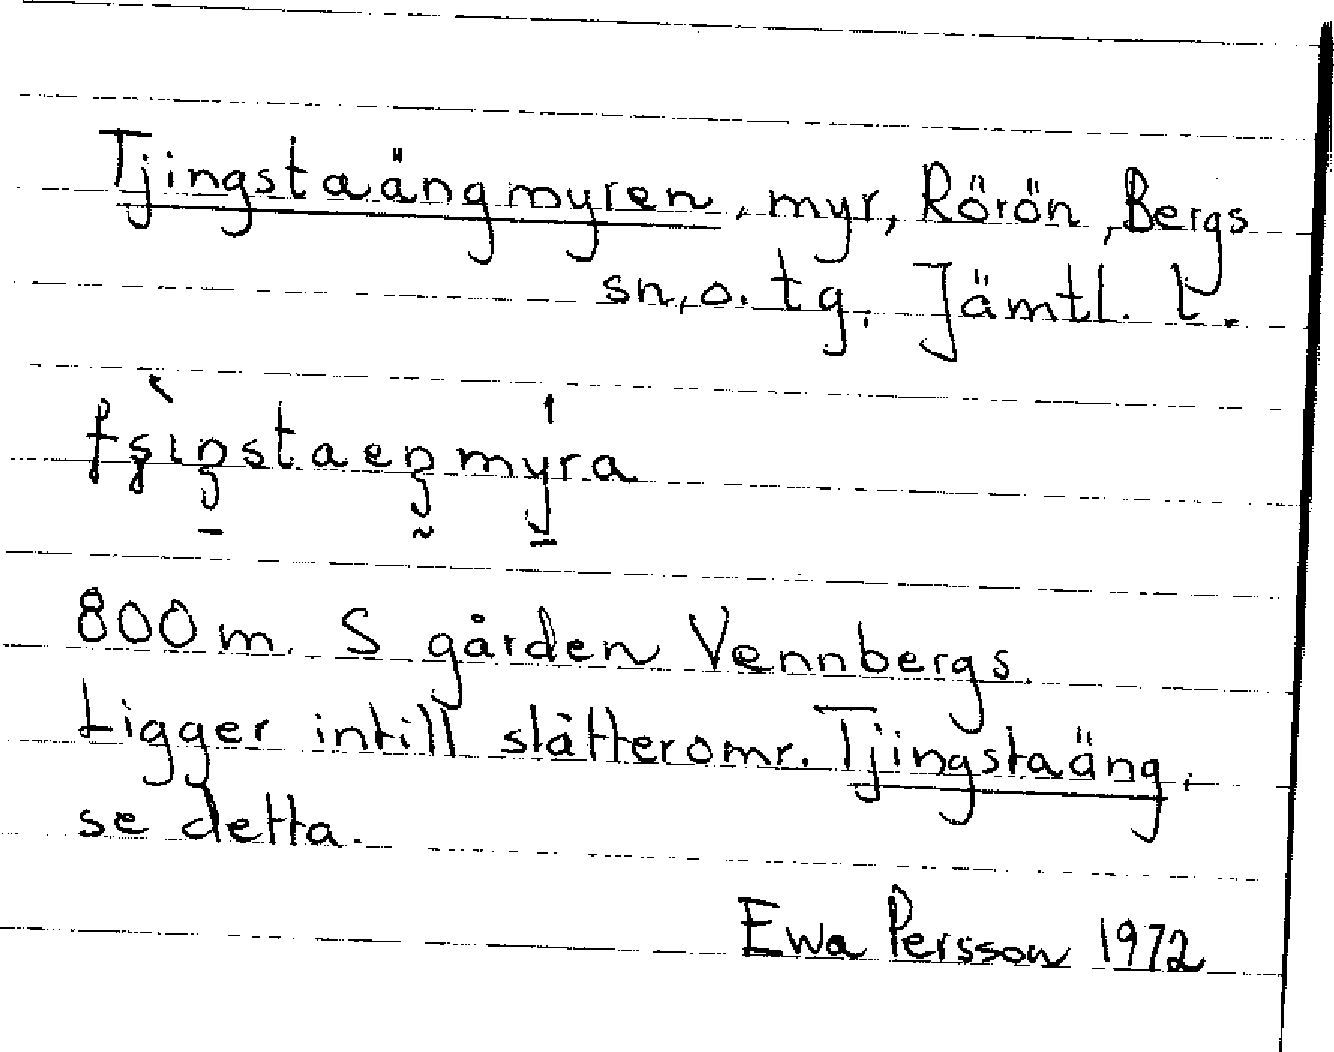 Tjingstaängmyren, myr, Rörön, Bergs
sn, o. tg, Jämtl. l.
800 m. S gården Vennbergs.
Ligger intill slåtteromr. Tjingstaäng,
se detta.
Ewa Persson 1972